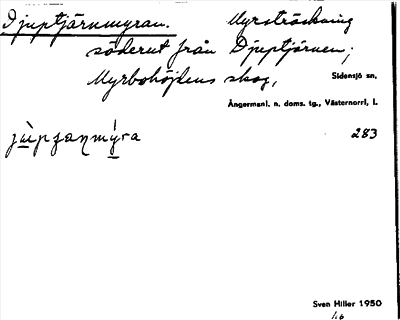 Djuptjärnmyran. Myrsträckning
söderut från Djuptjärnen;
Myrbohöjdens skog,
Sidensjö sn,
Ångermanl. n. doms. tg., Västernorrl. l.
283
Sven Hiller 1950